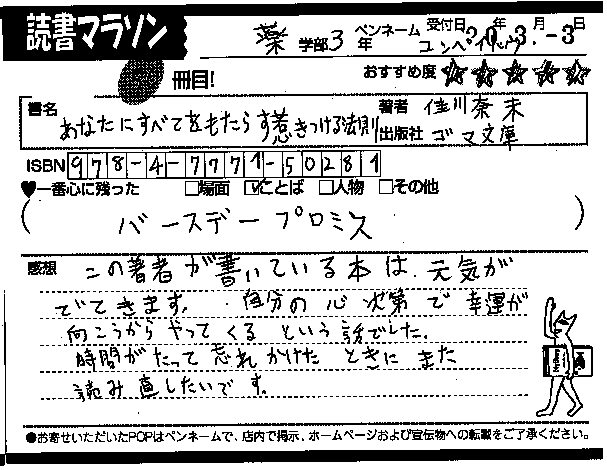 読書マラソン
薬 学部 3 年 ペンネーム コンペイトウ 受付日 20年 3月 -3日
冊目!
おすすめ度 ☆☆☆☆☆
書名 あなたにすべてをもたらす惹きつける法則
著者 佳川奈未
出版社 ゴマ文庫
ISBN 978-4-7771-50281
♥一番心に残った □場面 ☑ことば □人物 □その他
( バースデープロミス )
感想 この著者が書いている本は、元気が
でてきます。自分の心次第で幸運が
向こうからやってくるという話でした。
時間がたって忘れかけたときにまた
読み直したいです。
●お寄せいただいたPOPはペンネームで、店内で掲示、ホームページおよび宣伝物への転載をご了承ください。